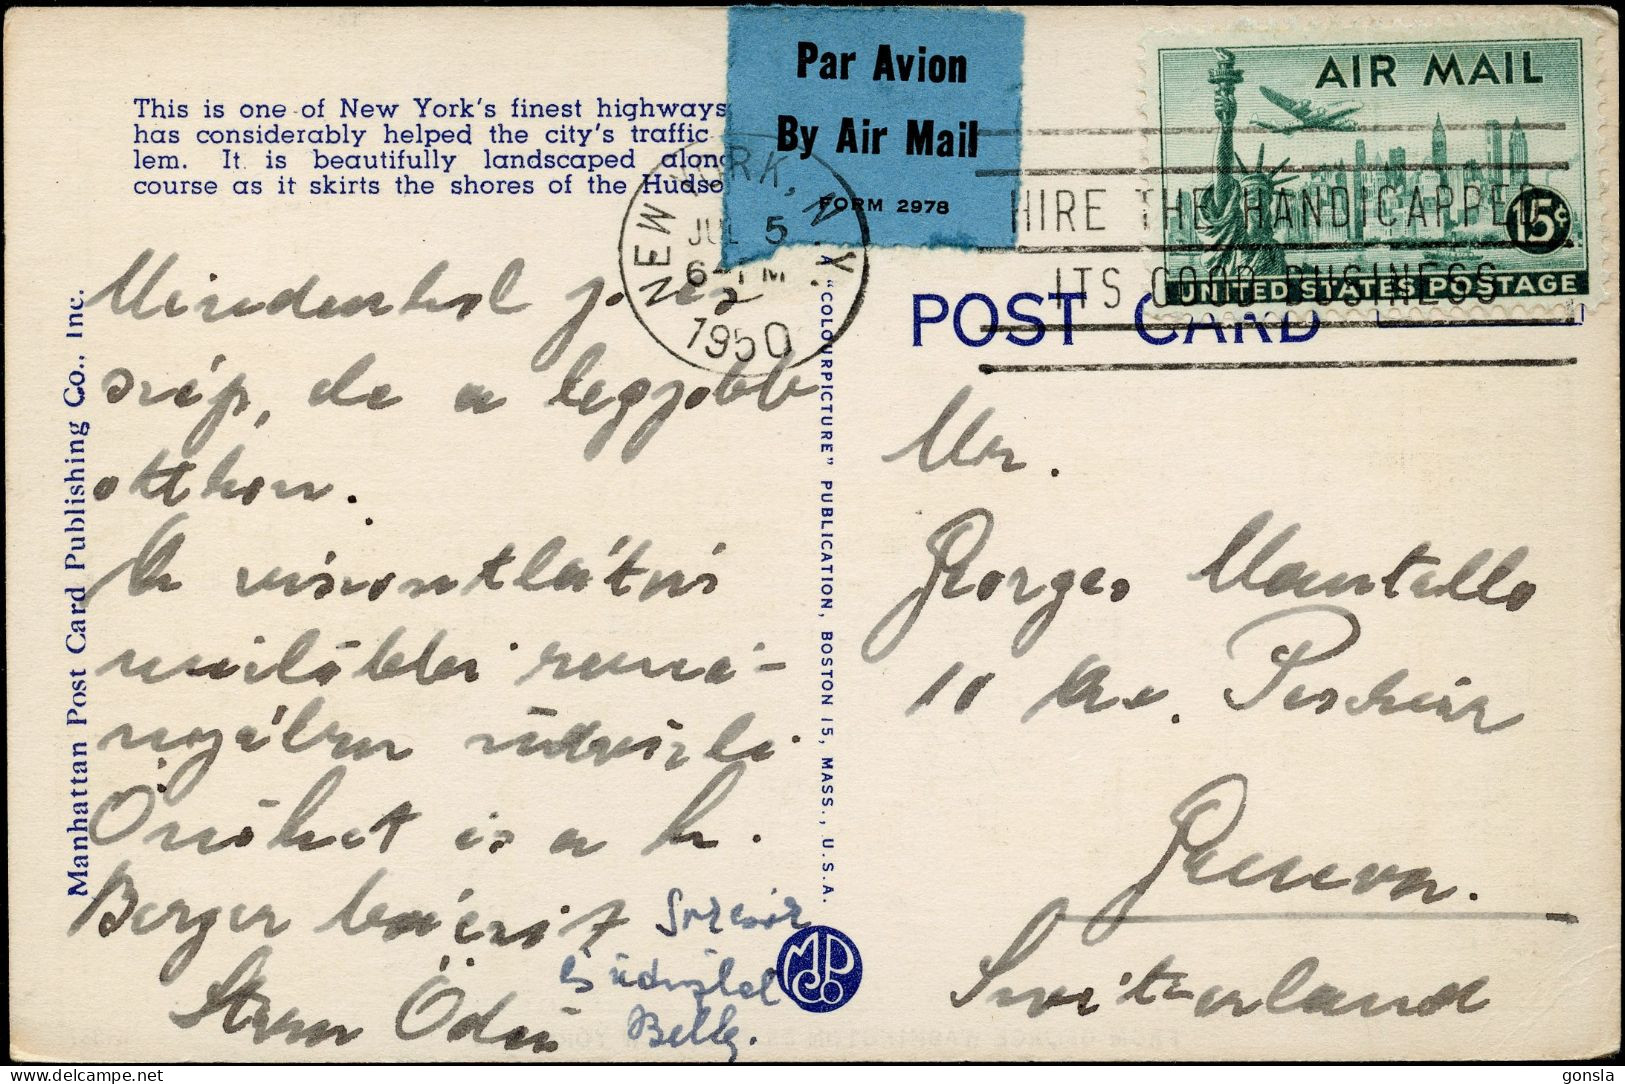 This is one of New York's finest highways
has considerably helped the city's traffic
lem. It is beautifully landscaped along
course as it skirts the shores of the Hudso
Par Avion
By Air Mail
FORM 2978
AIR MAIL
15¢
UNITED STATES POSTAGE
NEW YORK, N.Y.
JUL 5
6-PM
1950
HIRE THE HANDICAPPED
ITS GOOD BUSINESS
POST CARD
Manhattan Post Card Publishing Co., Inc.
A "COLOURPICTURE" PUBLICATION, BOSTON 15, MASS., U.S.A.
Mindenhol
szép, de a legjobb
otthon.
A viszontlátás
mielőbbi remé-
nyében üdvözli
Önöket is a k.
Berger
Stern Ödön
üdvözlet
Bella.
Mr.
Georges Mantello
10 Ave. Peschier
Geneva.
Switzerland
MPC
gonsla